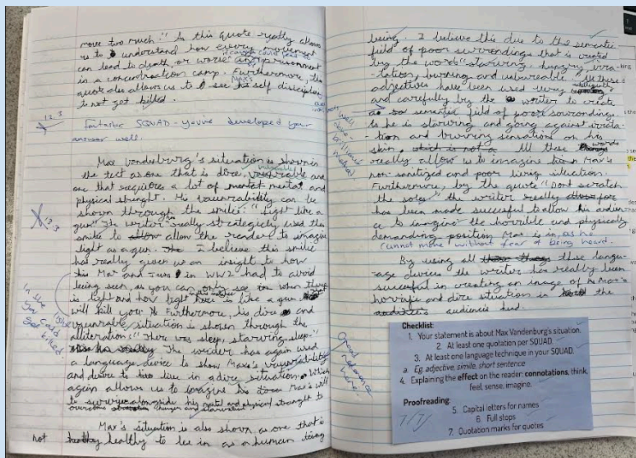 move too much". In this quote really allows
us to understand how every movement
can lead to death, or worse imprisonment
in a concentration camp. Furthermore, this
quote also allows us to see his self discipline
to not get killed.
Fantastic SQUAD - you've developed your
answer well!
Max Vandenburg's situation is shown in
the text as one that is dire, and
one that requires a lot of mental and
physical strenght. His can be
shown through the smilie: "light like a
gun" The writer really strategicly used this
smile to allow the reader to imagine
light as a gun. I believe this smilie
has really given us an insight to how
Max and Jews in WW2 had to avoid
being seen, as you can only see when there
is light and how light like a gun
will kill you. Furthermore, his dire and
situation is shown through the
alliteration: "There was sleep, starving sleep."
The writer has again used
a language device to show Max's
and desire to live in a dire situation. Which
again allows us to imagine his Max's will
to survive alongside his mental and physical strenght to
overcome hunger and starvation
Max's situation is also shown as one that is
not healthy to live in as a human
being. I believe this due to the semantic
field of poor surrondings that is created
by the words "starving hungry, irra-
tation, burning and unbearable" All these
adjectives have been used very
and carefully by the writer to create
a semantic field of poor sorrondings
to him starving and going against irrata-
tion and burning sensation on his
skin. All these words
really allow us to imagine Max's
non-sanitized and poor living situation.
Furthermore, by the quote "Dont scratch
the soles" the writer really
has been made succesful to allow his audien-
ce to imagine the horrible and physically
demanding position Max is in as he
cannot move without fear of being heard.
By using all these langu-
age devices the writer has really been
succesful in creating an image of Max's
horrific and dire situation in the
audiences head.
Checklist:
1. Your statement is about Max Vandenburg's situation.
2. At least one quotation per SQUAD.
3. At least one language technique in your SQUAD.
a. Eg. adjective, simile, short sentence
4. Explaining the effect on the reader: connotations, think,
feel, sense, imagine.
Proofreading:
5. Capital letters for names
6. Full stops
7. Quotation marks for quotes
7/7